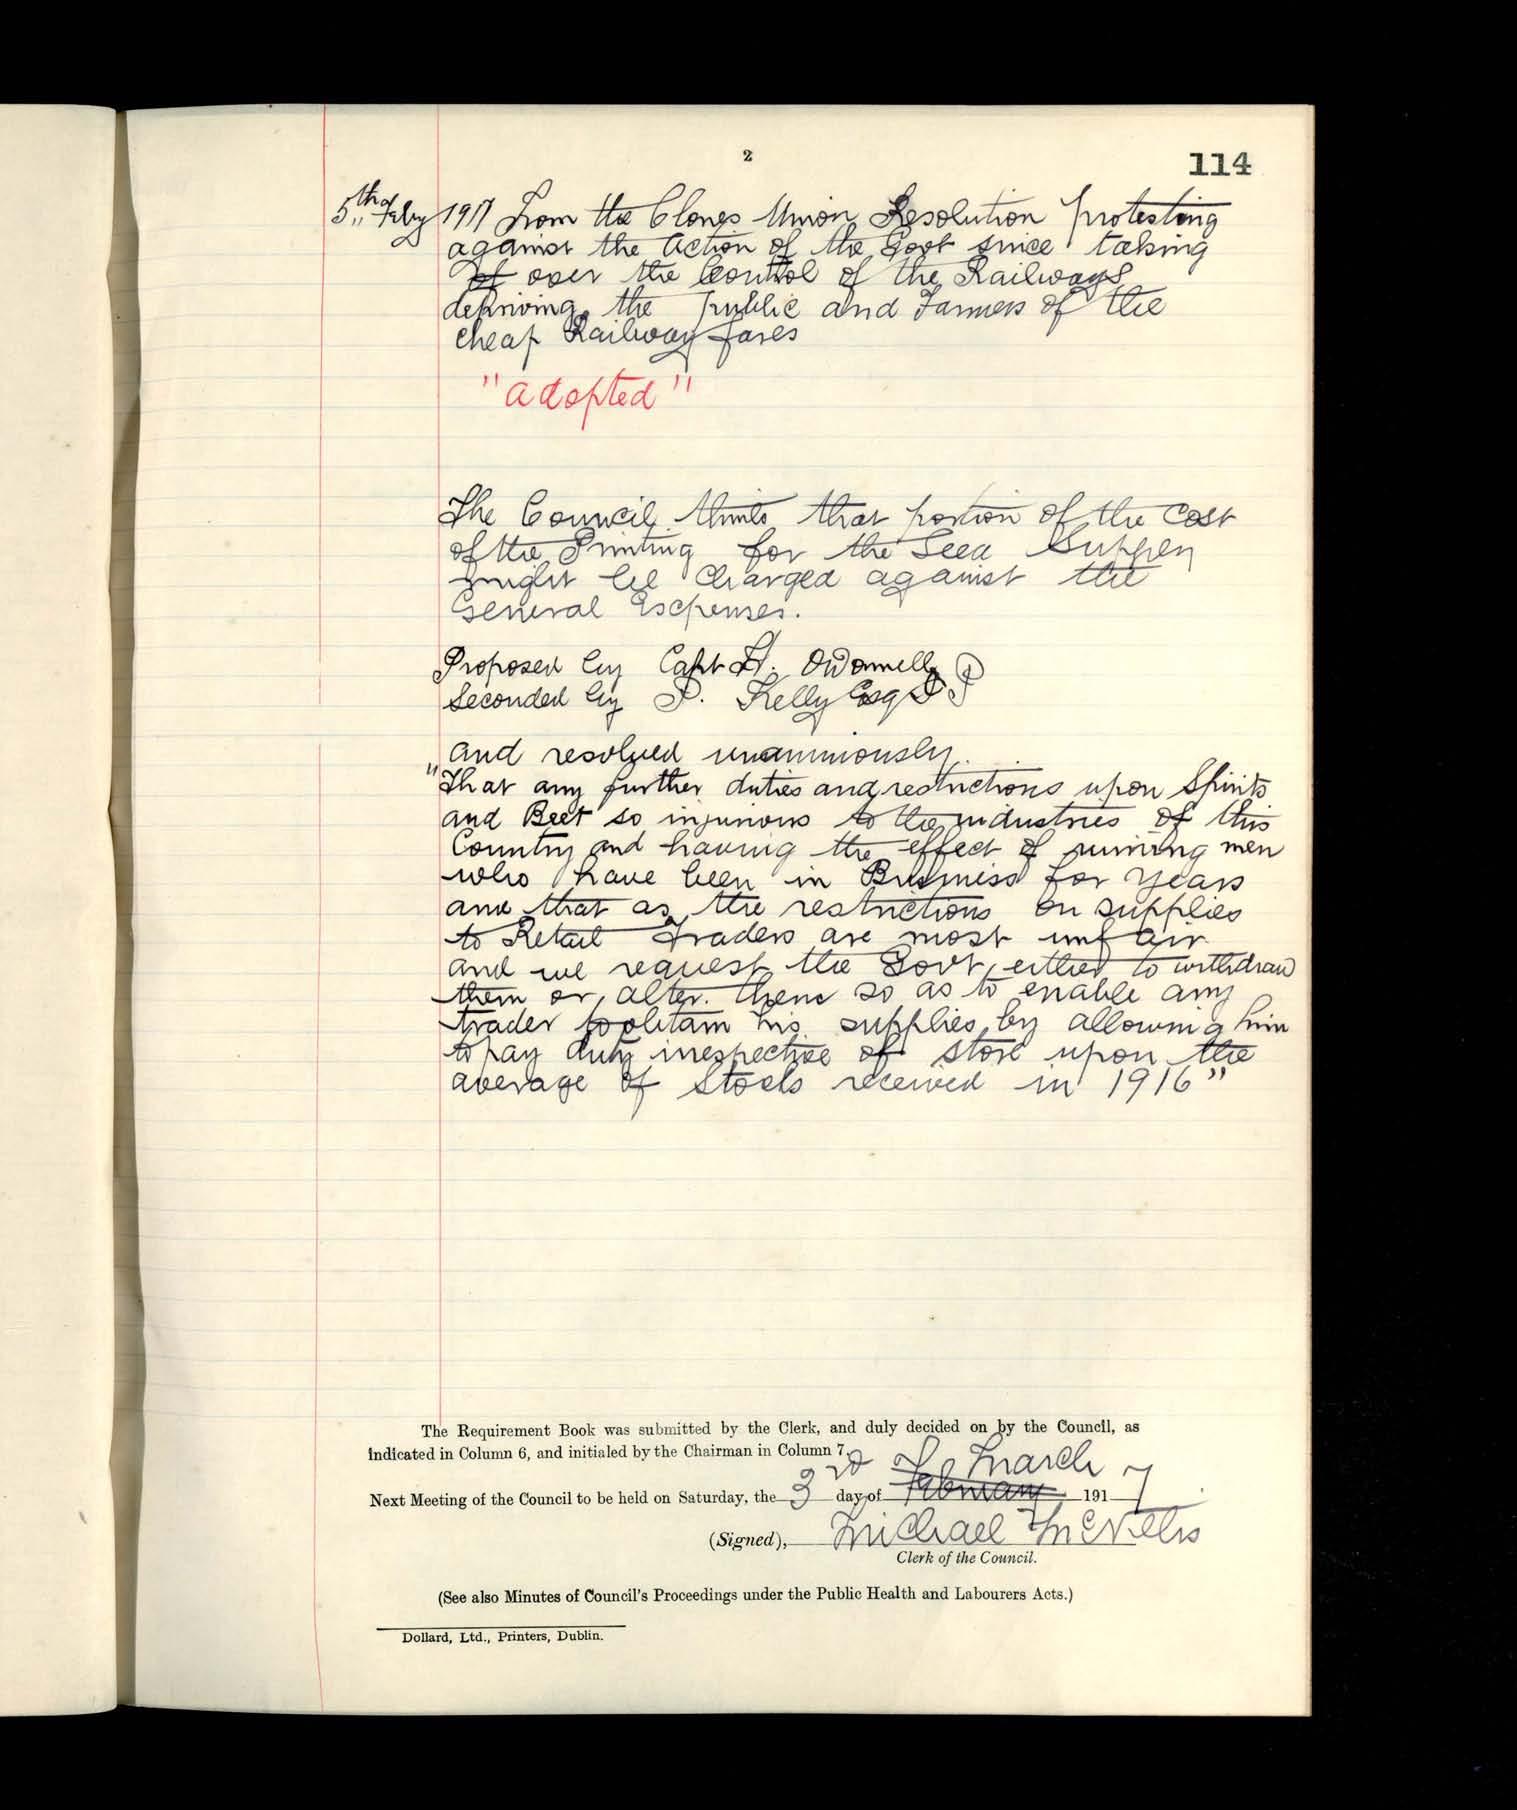 2
114
5th Feby 1917 From the Clones Union Resolution protesting
against the Action of the Govt since taking
of over the Control of the Railways
depriving the public and Farmers of the
cheap Railway fares
"Adopted"
The Council thinks that portion of the Cost
of the Printing for the Seed Supply
might be Charged against the
General Expenses.
Proposed by Capt H. O'Donnell
Seconded by P. Kelly Esq
and resolved unanimously.
"That any further duties and restrictions upon Spirits
and Beer so injurious to the industries of this
Country and having the effect of ruining men
who have been in Business for years
and that as the restrictions on supplies
to Retail Traders are most unfair
and we request the Govt either to withdraw
them or alter them so as to enable any
trader to obtain his supplies by allowing him
to pay duty irrespective of store upon the
average of Stocks received in 1916"
The Requirement Book was submitted by the Clerk, and duly decided on by the Council, as
indicated in Column 6, and initialed by the Chairman in Column 7.
Next Meeting of the Council to be held on Saturday, the 3rd day of February March 1917
(Signed), Michael
Clerk of the Council.
(See also Minutes of Council's Proceedings under the Public Health and Labourers Acts.)
Dollard, Ltd., Printers, Dublin.